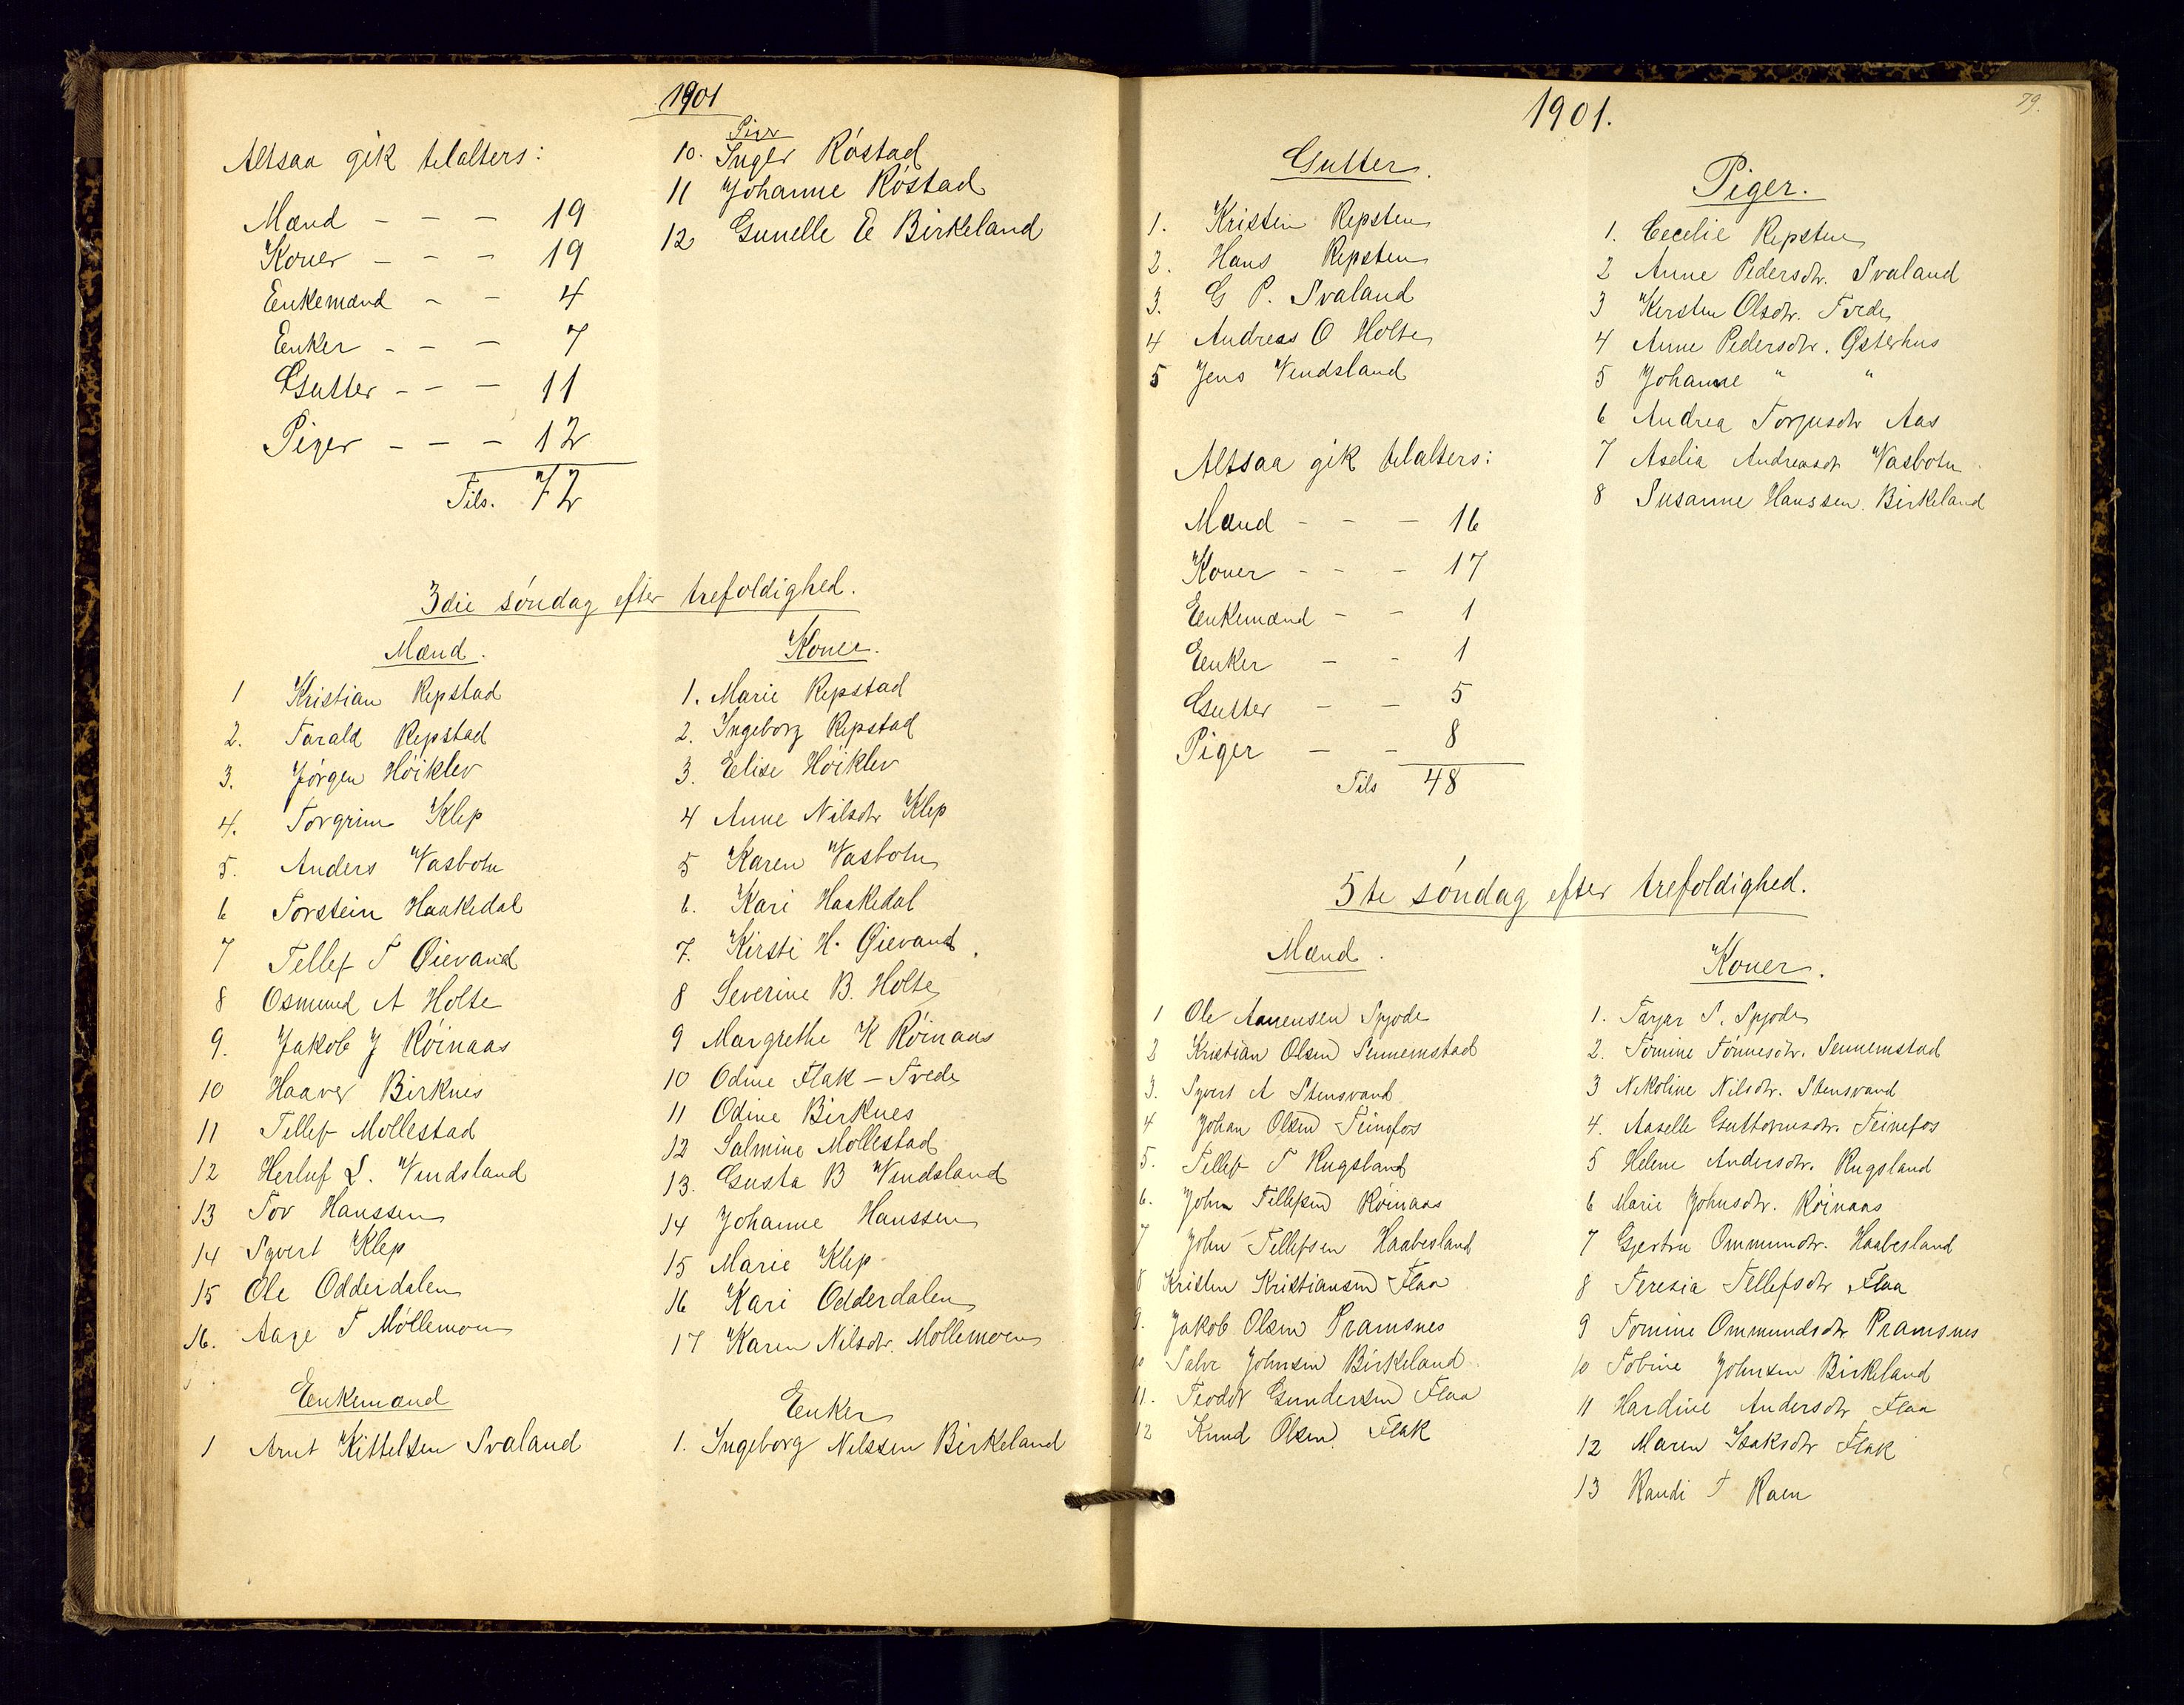 1901
Altsaa gik tilalters:
Mænd - - - 19
Koner - - - 19
Enkemænd - - 4
Enker - - - 7
Gutter - - - 11
Piger - - - 12
Tils. 72
Piger
10. Inger Røstad
11 Johanne Røstad
12 Gunelle E Birkeland
3die søndag efter trefoldighed.
Mænd.
1 Kristian Repstad
2. Tarald Repstad
3. Jørgen Høiklev
4. Torgrim Klep
5. Anders Vasbotn
6 Torstein Haakedal
7 Tellef T Øievand
8 Osmund A Holte
9. Jakob J Røinaas
10 Haaver Birknes
11 Tellef Mollestad
12 Herluf L. Vindsland
13 Tov Hanssen
14 Syvert Klep
15 Ole Odderdalen
16. Aage T Møllemoen
Enkemænd
1 Arnt Kittelsen Svaland
Koner.
1. Marie Repstad
2. Ingeborg Repstad
3. Elise Høiklev
4 Anne Nilsdtr Klep
5 Karen Vasbotn
6. Kari Haakedal
7. Kirsti H. Øievand.
8 Severine B. Holte
9 Margrethe K Røinaas
10 Odine Flak - Tvede
11 Odine Birknes
12 Salmine Mollestad
13. Gusta B Vindsland
14 Johanne Hanssen
15 Marie Klep
16 Kari Odderdalen
17 Karen Nilsdtr. Møllemoen
Enker
1. Ingeborg Nilssen Birkeland
79.
1901.
Gutter.
1. Kristen Repsten
2. Hans Repsten
3. G P. Svaland
4 Andreas O Holte
5 Jens Vindsland
Altsaa gik tilalters:
Mænd - - - 16
Koner - - - 17
Enkemænd - - 1
Enker - - 1
Gutter - - 5
Piger - - 8
Tils 48
Piger.
1. Cecelie Repsten
2 Anne Pedersdtr. Svaland
3 Kirsten Olsdtr. Tvede
4 Anne Pedersdtr. Østerhus
5 Johanne " "
6 Andrea Torjusdtr Aas
7 Aselia Andreasdt Vasbotn
8 Susanne Hanssen. Birkeland
5te søndag efter trefoldighed.
Mænd.
1 Ole Aanensen Spjode
2 Kristian Olsen Sennemstad
3. Syvert A Stensvand
4 Johan Olsen Teinefos
5. Tellef T Rugsland
6. John Tellefsen Røinaas
7 John Tellefsen Haabesland
8 Kristen Kristiansen Flaa
9. Jakob Olsen Pramsnes
10 Salve Johnsen Birkeland
11. Teodor Gundersen Flaa
12 Knud Olsen Flak
Koner.
1. Tarjer S. Spjode
2. Tomine Tønnesdtr. Sennemstad
3 Nikoline Nilsdtr. Stensvand
4. Aaselle Guttormsdtr. Teinefos
5 Helene Andersdtr. Rugsland
6 Marie Johnsdtr. Røinaas
7 Gjertru Ommundtr. Haabesland
8 Teresia Tellefsdtr Flaa
9 Tomine Ommundsdtr Pramsnes
10 Tobine Johnsen Birkeland
11 Hardine Andersdtr Flaa
12 Maren Isaksdtr Flak
13 Randi T Raen